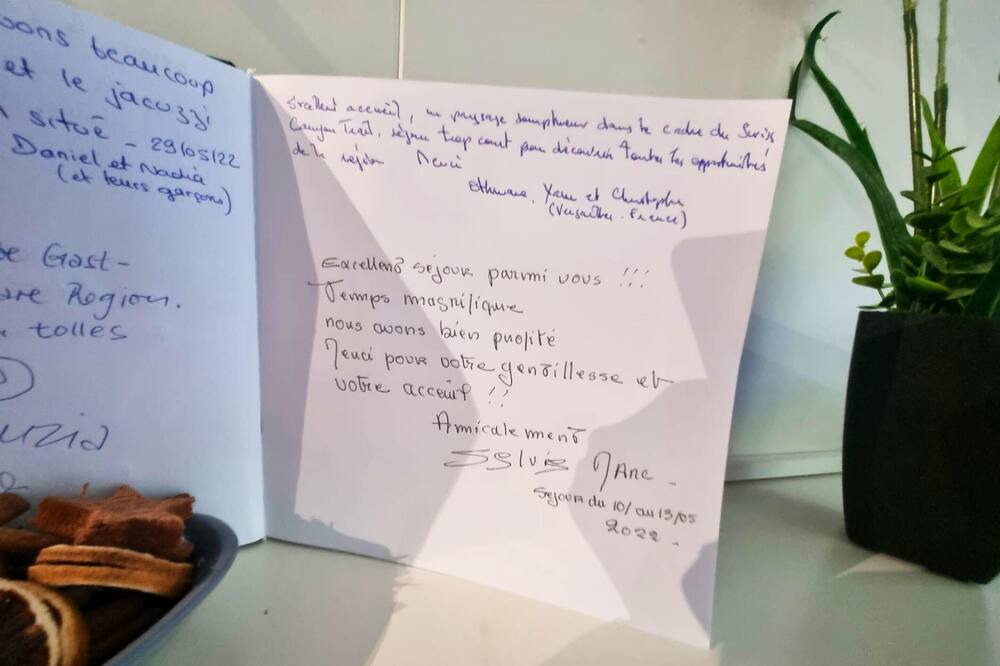 vons beaucoup
et le jacuzzi
situé - 29/05/22
Daniel et Nadia
(et leurs garçons)
Gast-
Region.
tolles
accueil, un paysage somptueux dans le cadre du Swiss
Canyon Trail, séjour trop court pour découvrir toutes les opportunités
de la région Merci
Yann et Christophe
(Versailles - France)
Excellent séjour parmi vous !!!
Temps magnifique
nous avons bien profité
Merci pour votre gentillesse et
votre acceuil !!
Amicalement
Sylvie Marc -
Sejour du 10/ au 13/05
2022 -